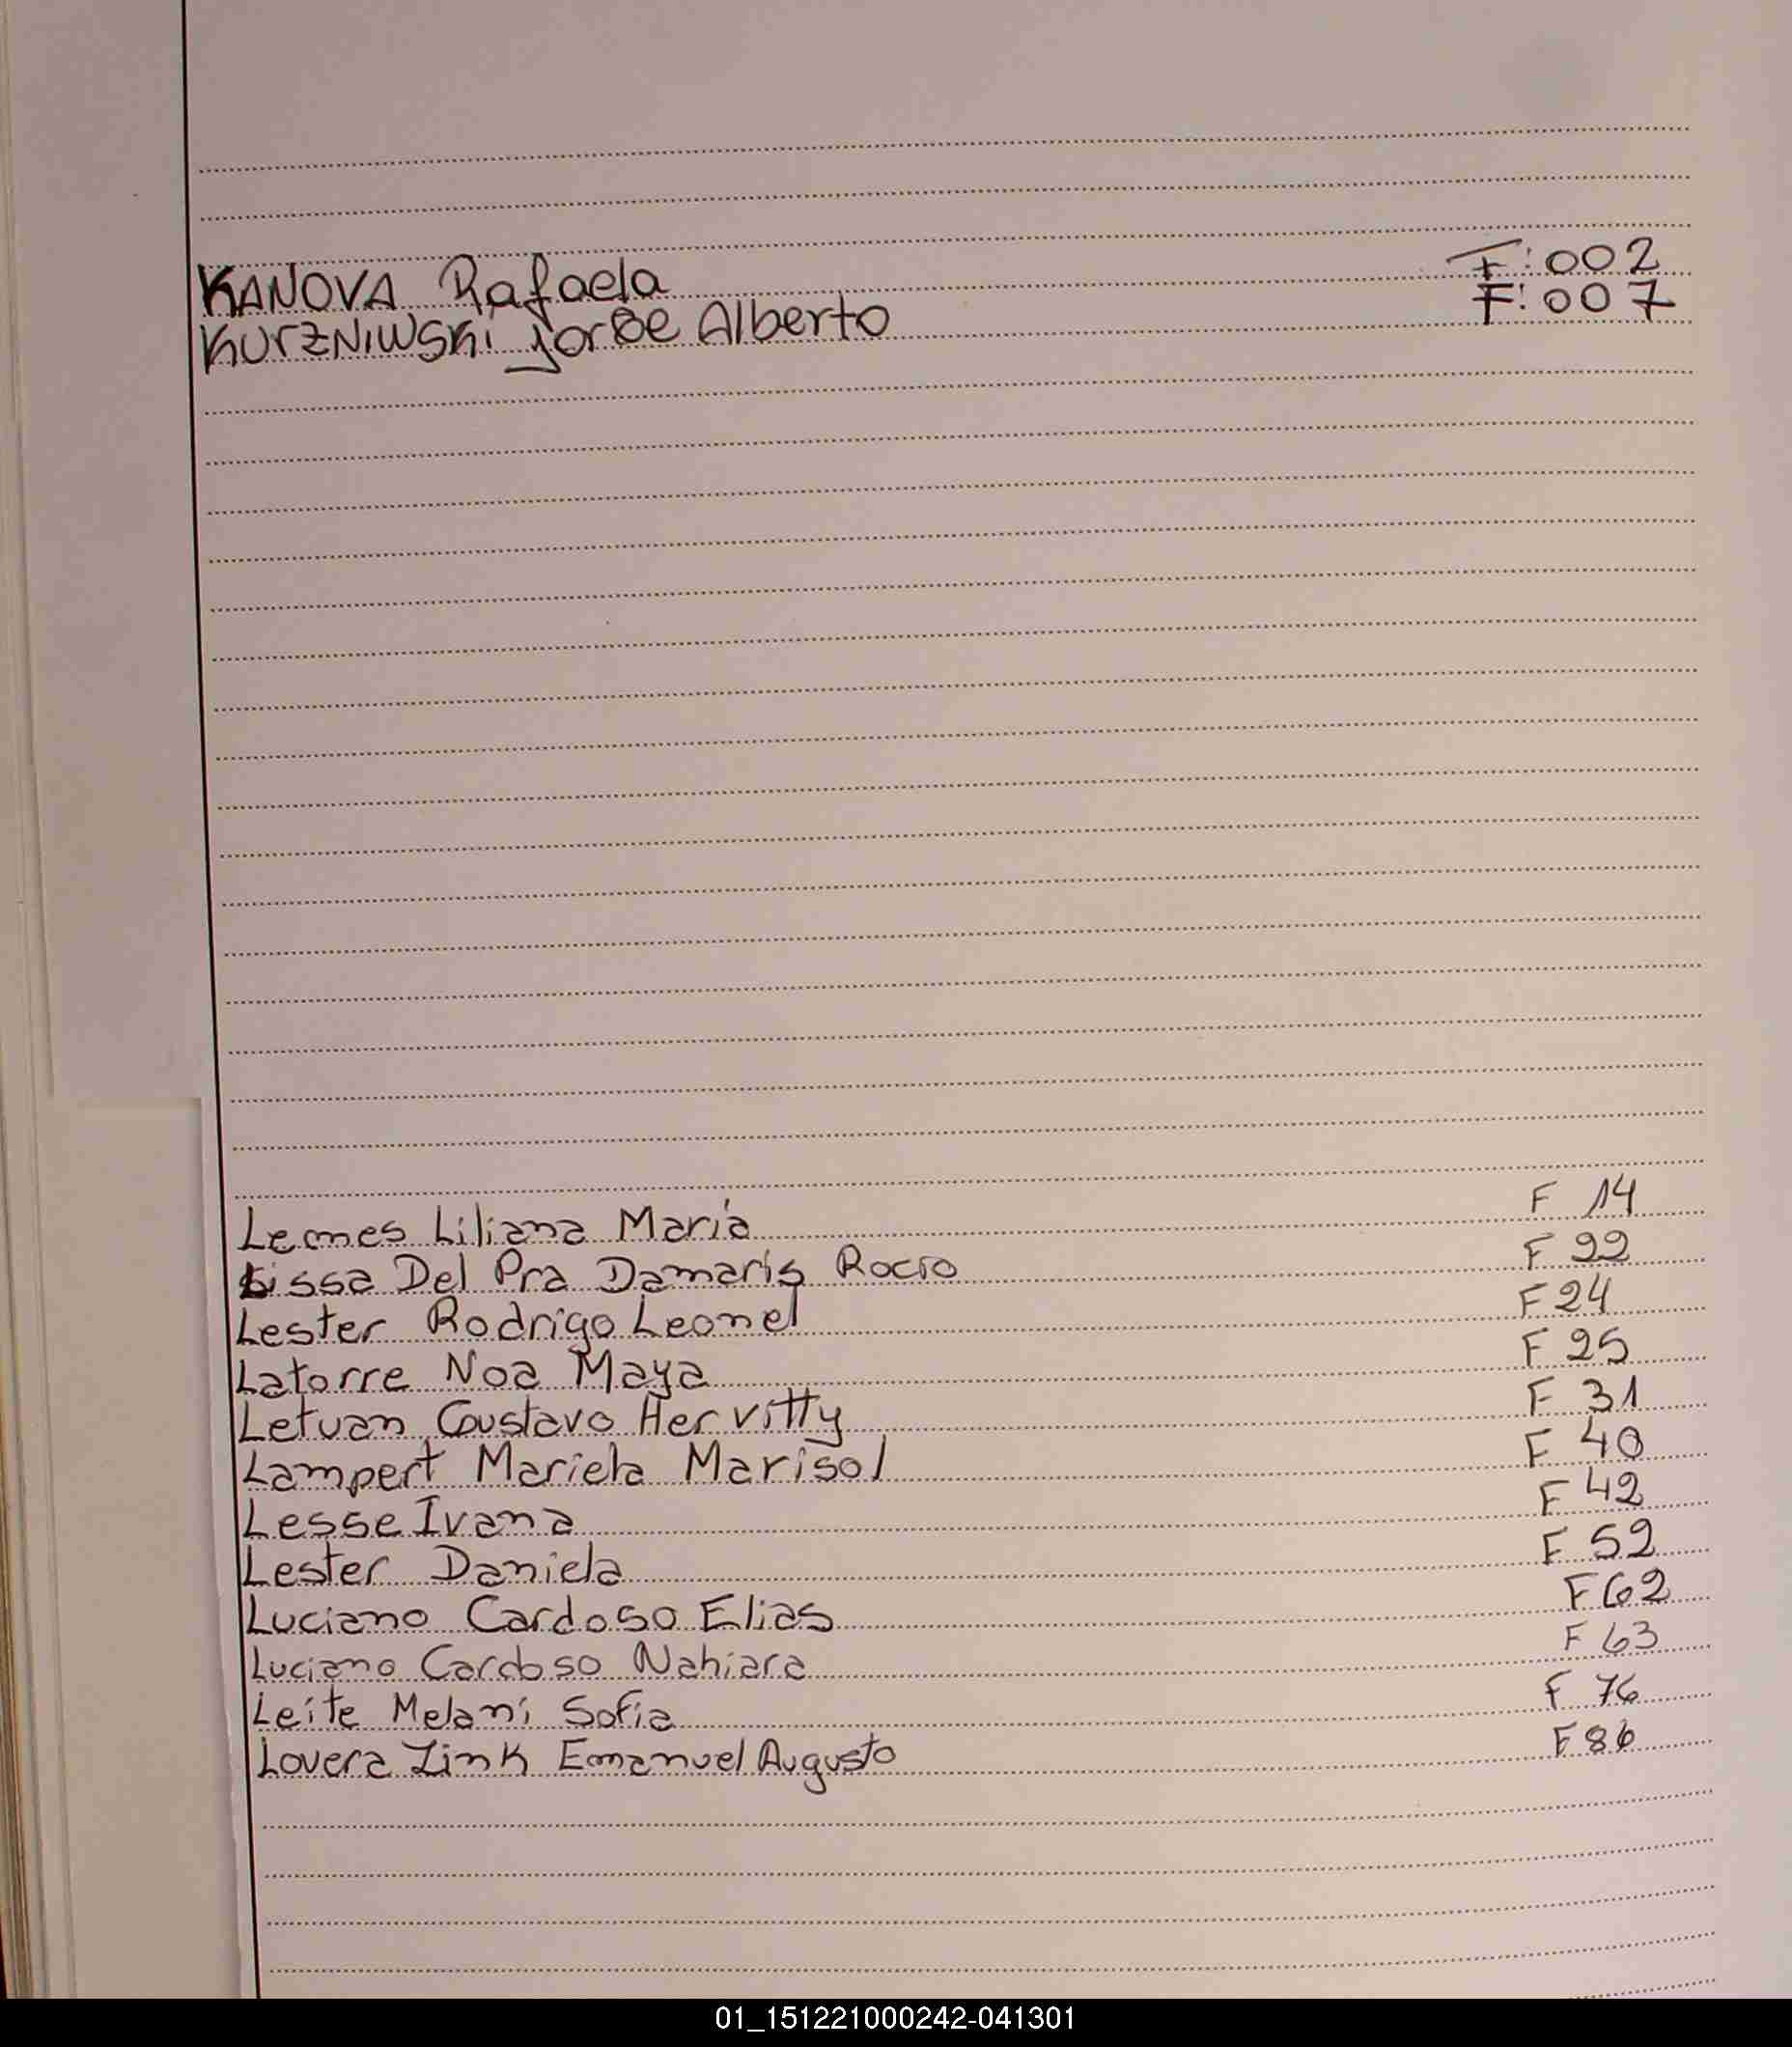 KANOVA Rafaela F:002
KURZNIWSKI Jorge Alberto F:007
Lemes Liliana María F 14
Lissa Del Pra Damaris Rocio F 22
Lester Rodrigo Leonel F 24
Latorre Noa Maya F 25
Letuan Gustavo Her vitty F 31
Lampert Mariela Marisol F 40
Lesse Ivana F 42
Lester Daniela F 52
Luciano Cardoso Elias F 62
Luciano Cardoso Nahiara F 63
Leite Melani Sofia F 76
Lovera Zink Emanuel Augusto F 86
01_151221000242-041301